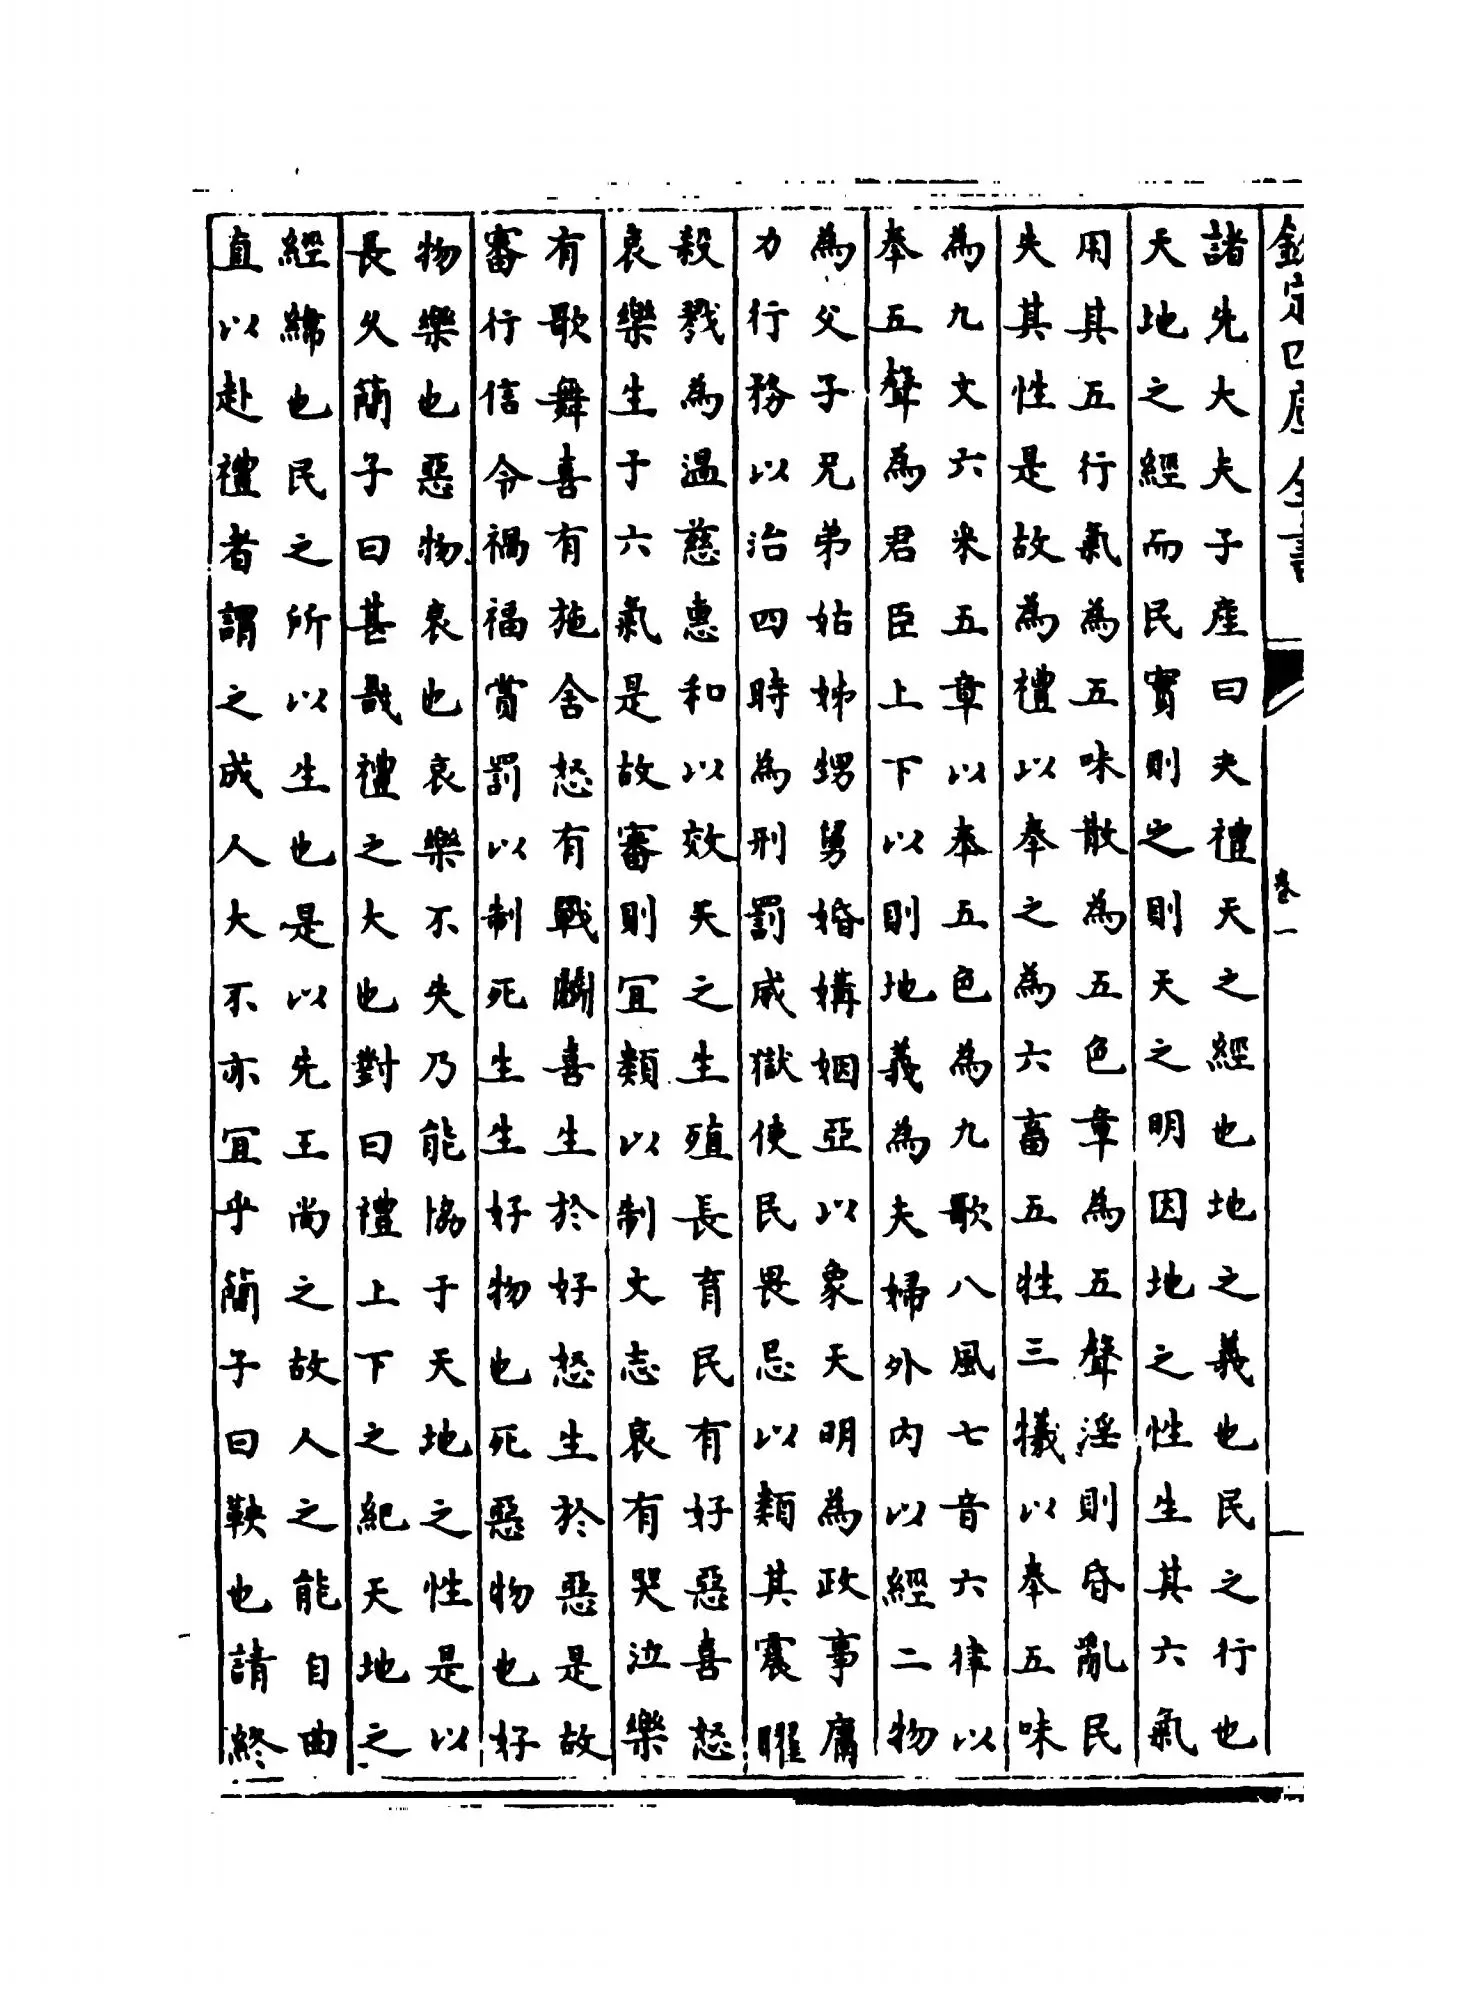 欽定四庫全書
卷一
諸先大夫子產曰夫禮天之經也地之義也民之行也
天地之經而民實則之則天之明因地之性生其六氣
用其五行氣為五味散為五色章為五聲淫則昏亂民
失其性是故為禮以奉之為六畜五牲三犧以奉五味
為九文六采五章以奉五色為九歌八風七音六律以
奉五聲為君臣上下以則地義為夫婦外內以經二物
為父子兄弟姑姊甥舅婚媾姻亞以象天明為政事庸
力行務以治四時為刑罰威獄使民畏忌以類其震曜
殺戮為溫慈惠和以效天之生殖長育民有好惡喜怒
哀樂生于六氣是故審則宜類以制文志哀有哭泣樂
有歌舞喜有施舍怒有戰鬭喜生於好怒生於惡是故
審行信令禍福賞罰以制死生生好物也死惡物也好
物樂也惡物哀也哀樂不失乃能協于天地之性是以
長久簡子曰甚哉禮之大也對曰禮上下之紀天地之
經緯也民之所以生也是以先王尚之故人之能自曲
直以赴禮者謂之成人大不亦宜乎簡子曰鞅也請終